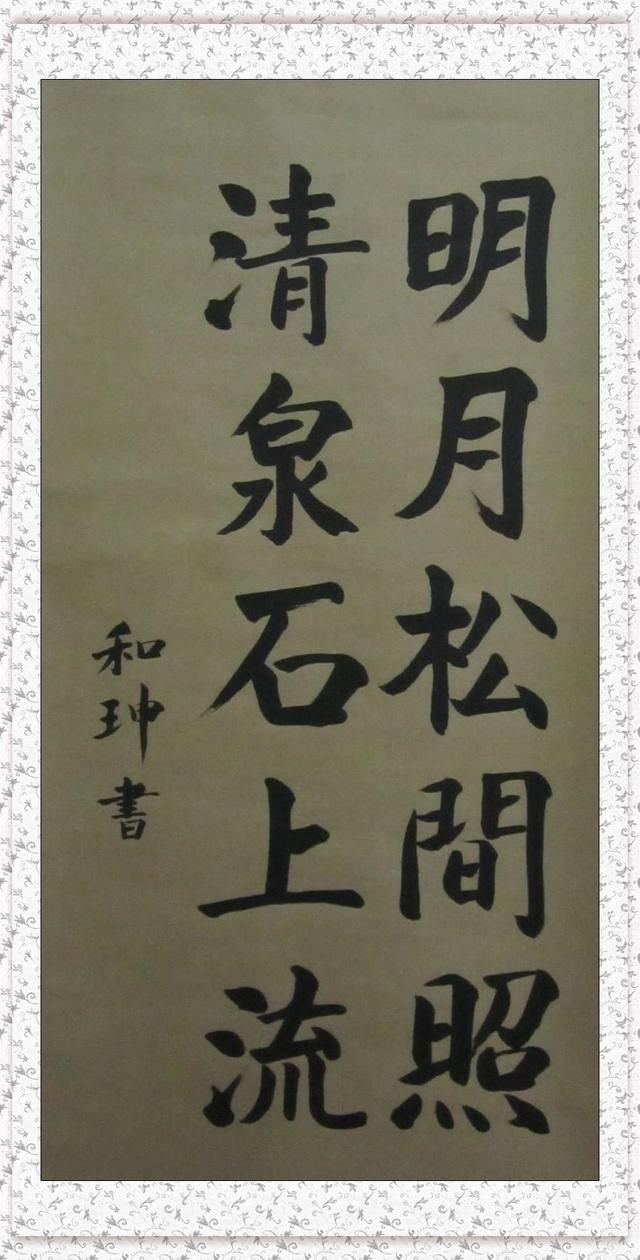 明月松間照
清泉石上流
和珅書